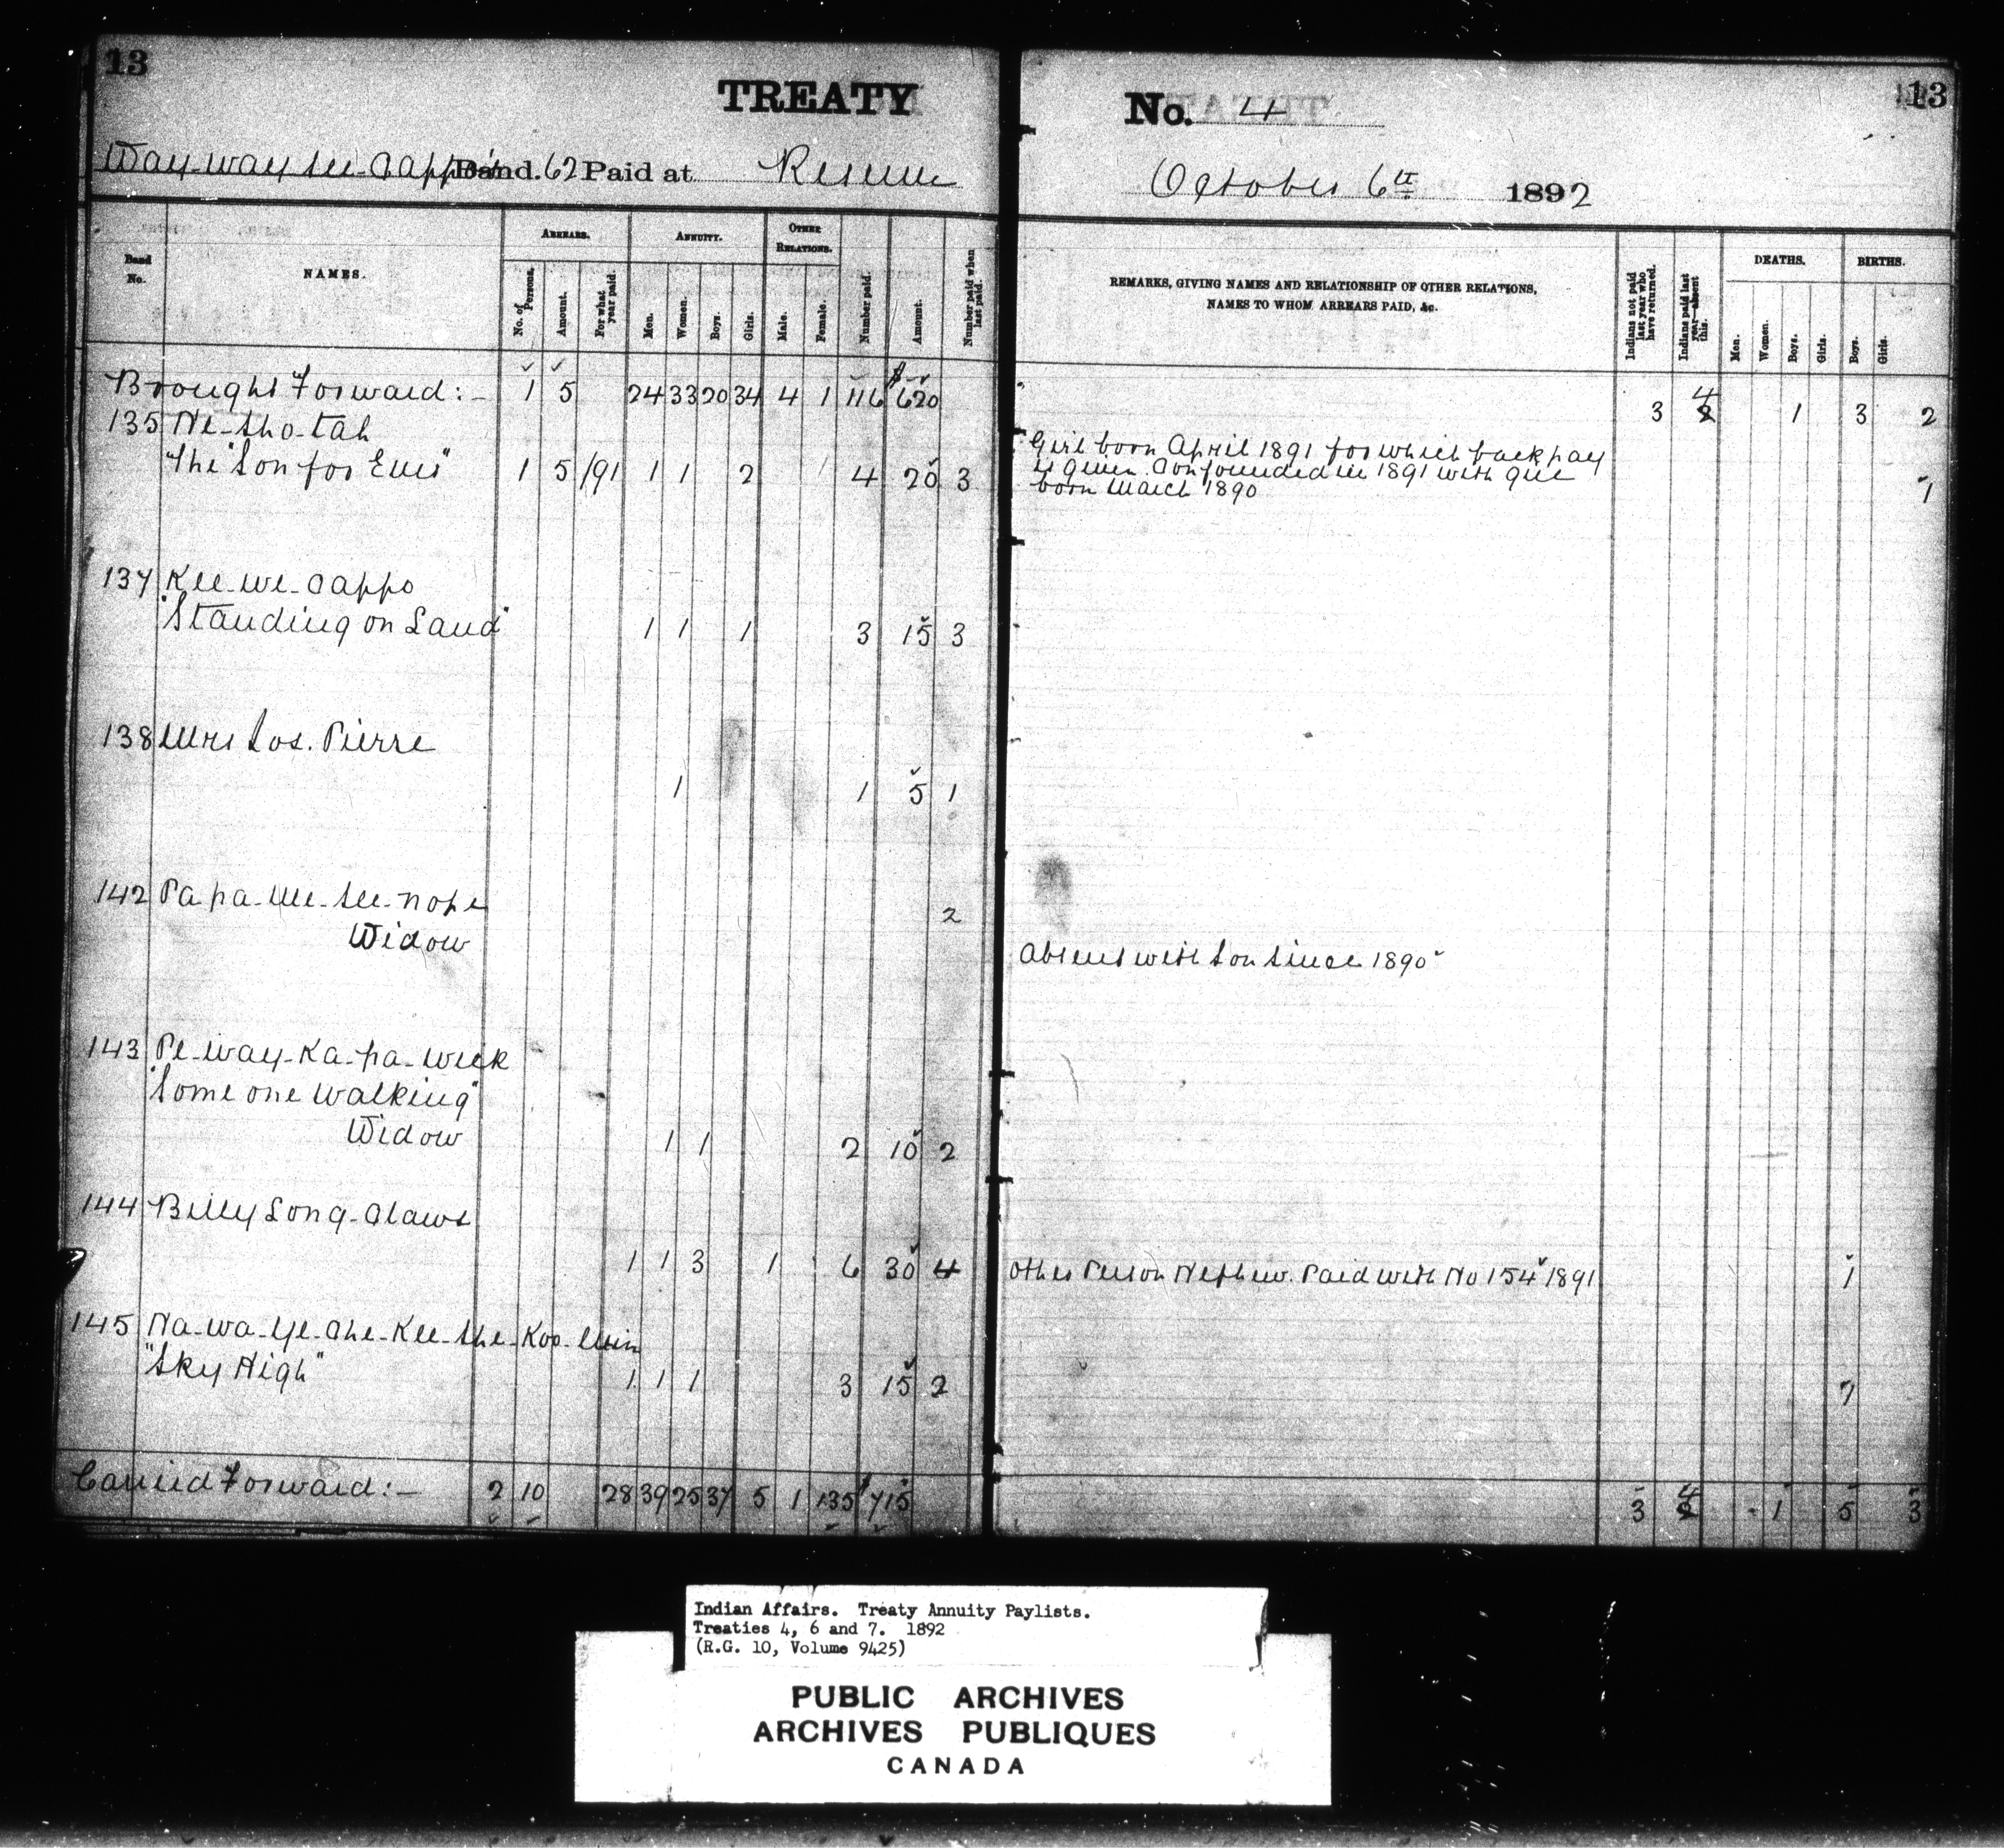 13
TREATY No. 4 13
Way-way-see-Cappo's Band. 62 Paid at Reserve October 6th 1892
Band No. NAMES. ARREARS. ANNUITY. OTHER RELATIONS. Number paid. Amount. Number paid when last paid.
No. of Persons. Amount. For what year paid. Men. Women. Boys. Girls. Male. Female.
REMARKS, GIVING NAMES AND RELATIONSHIP OF OTHER RELATIONS,
NAMES TO WHOM ARREARS PAID, &c.
Indians not paid last year who have returned. Indians paid last year—absent this. DEATHS. BIRTHS.
Men. Women. Boys. Girls. Boys. Girls.
Brought Forward:- 1 5 24 33 20 34 4 1 116 $620 3 4 1 3 2
135 Ne-sho-tah
The "Son for Ever" 1 5 /91 1 1 2 4 20 3
Girl born April 1891 for which back pay
is given. Confounded in 1891 with girl
born March 1890 1
137 Kee-we-Cappo
"Standing on Land" 1 1 1 3 15 3
138 Mrs Jos. Pierre
1 1 5 1
142 Pa pa-me-see-nope 2
Widow Absent with Son since 1890
143 Pe-way-Ka-pa-week
"Some one Walking"
Widow 1 1 2 10 2
144 Billy Long-Claws
1 1 3 1 6 30 4 Other Person Nephew. Paid with No 154 1891 1
145 Na-wa-ye-Che-Kee-she-Koo-win
"Sky High" 1 1 1 3 15 2 1
Carried Forward:- 2 10 28 39 25 37 5 1 135 $715 3 4 1 5 3
Indian Affairs. Treaty Annuity Paylists.
Treaties 4, 6 and 7. 1892
(R.G. 10, Volume 9425)
PUBLIC ARCHIVES
ARCHIVES PUBLIQUES
CANADA